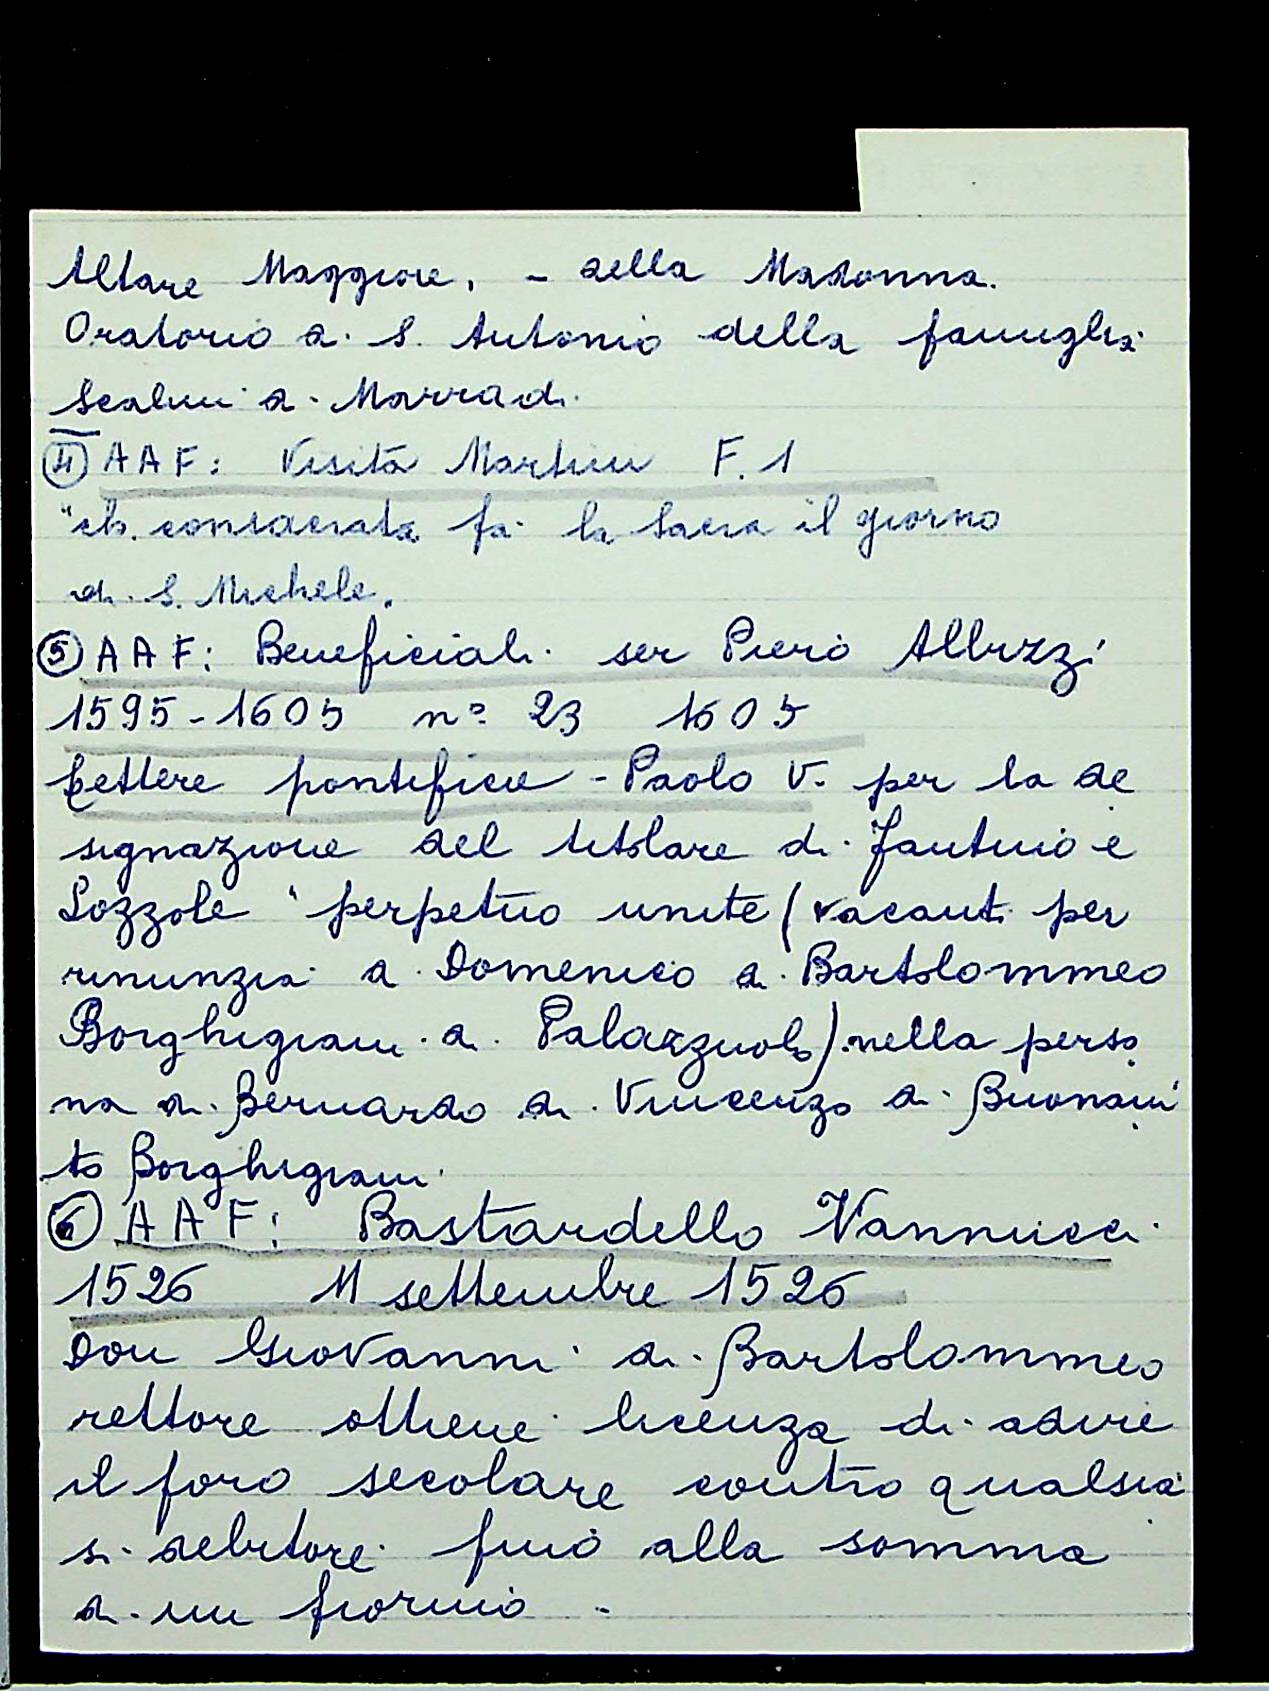 Altare Maggiore. - della Madonna.
Oratorio di S. Antonio della famiglia
Scalini di Marradi.
④ AAF: Visita Martini F. 1
"ch. consacrata fa la Sacra il giorno
di S. Michele.
⑤ AAF: Beneficiali ser Piero Albizzi
1595-1605 n° 23 1605
Lettere pontificie - Paolo V. per la de
signazione del titolare di Fantino e
Lozzole perpetuo unite (vacanti per
rinunzia di Domenico di Bartolommeo
Borghigiani di Palazzuolo) nella perso
na di Bernardo di Vincenzo di Buonavi
to Borghigiani
⑥ AAF: Bastardello Vannucci
1526 11 settembre 1526
Don Giovanni di Bartolommeo
rettore ottiene licenza di adire
il foro secolare contro qualsia
si debitore fino alla somma
di un fiorino -